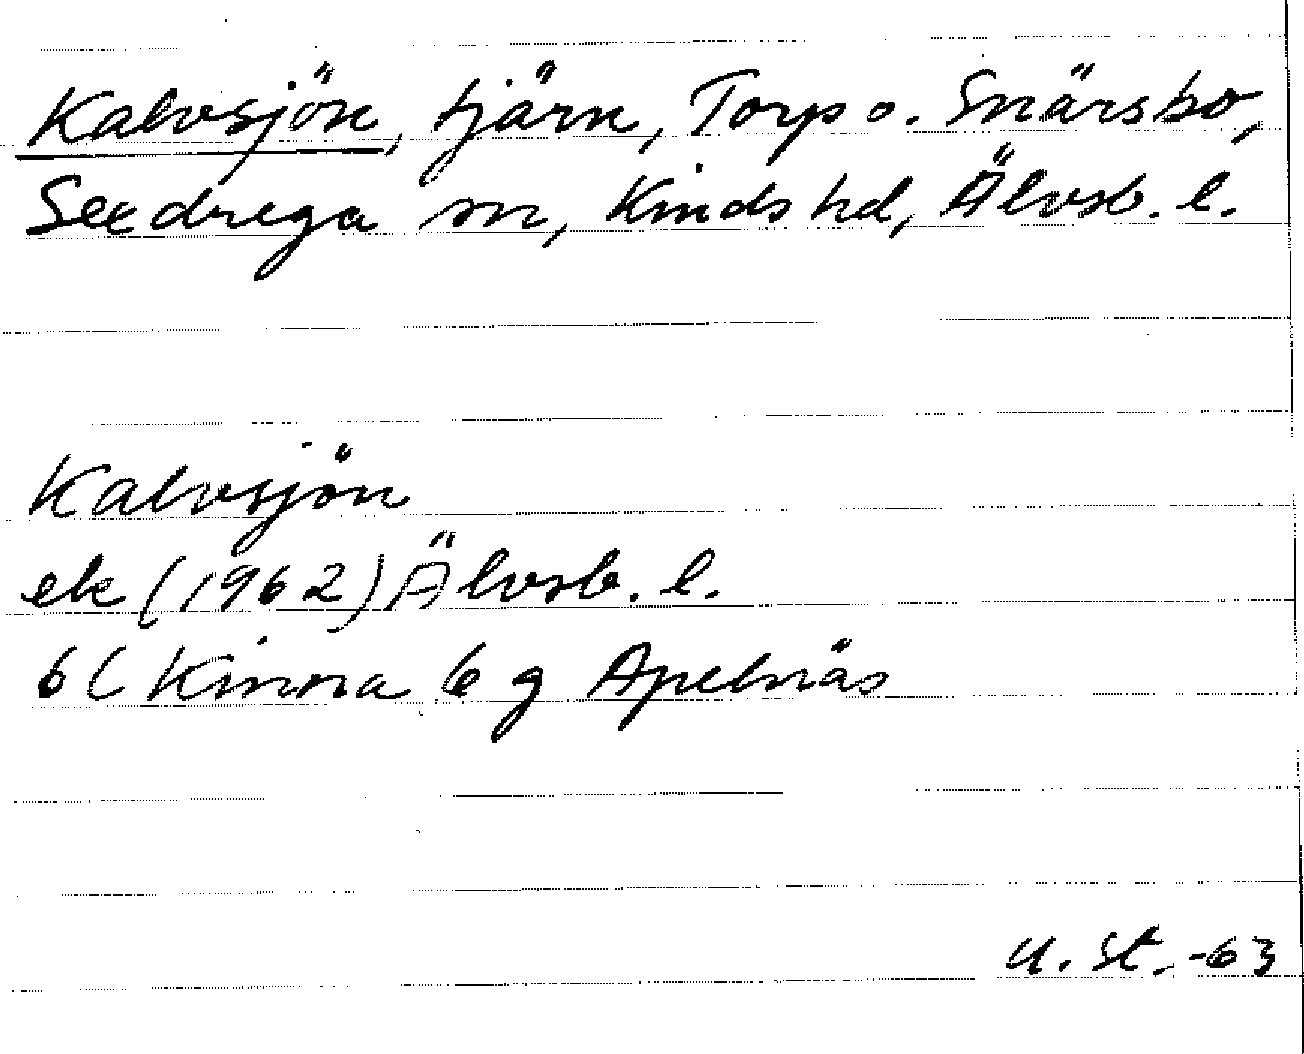 Kalvsjön, tjärn, Torp o. Snärsbo,
Sexdrega sn, Kinds hd, Älvsb. l.
Kalvsjön
ek (1962) Älvsb. l.
6C Kinna 6 g Apelnäs
U. St. -63